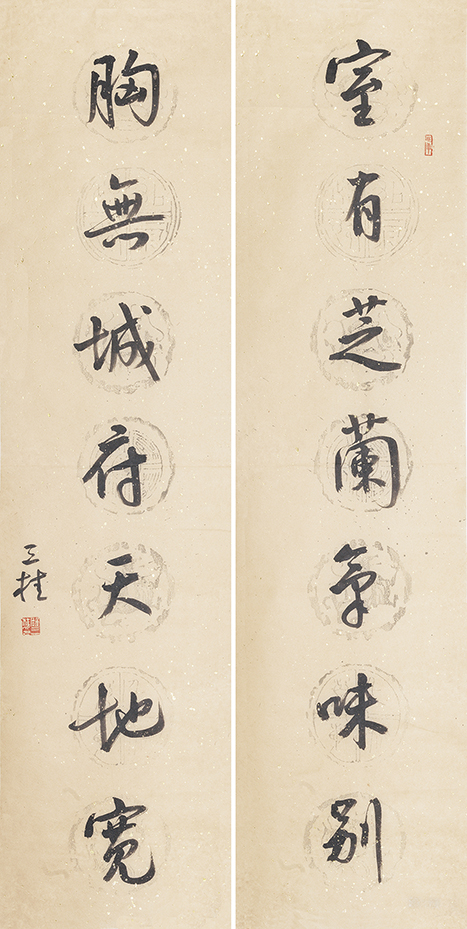 室有芝蘭氣味別
胸無城府天地寬
三桂